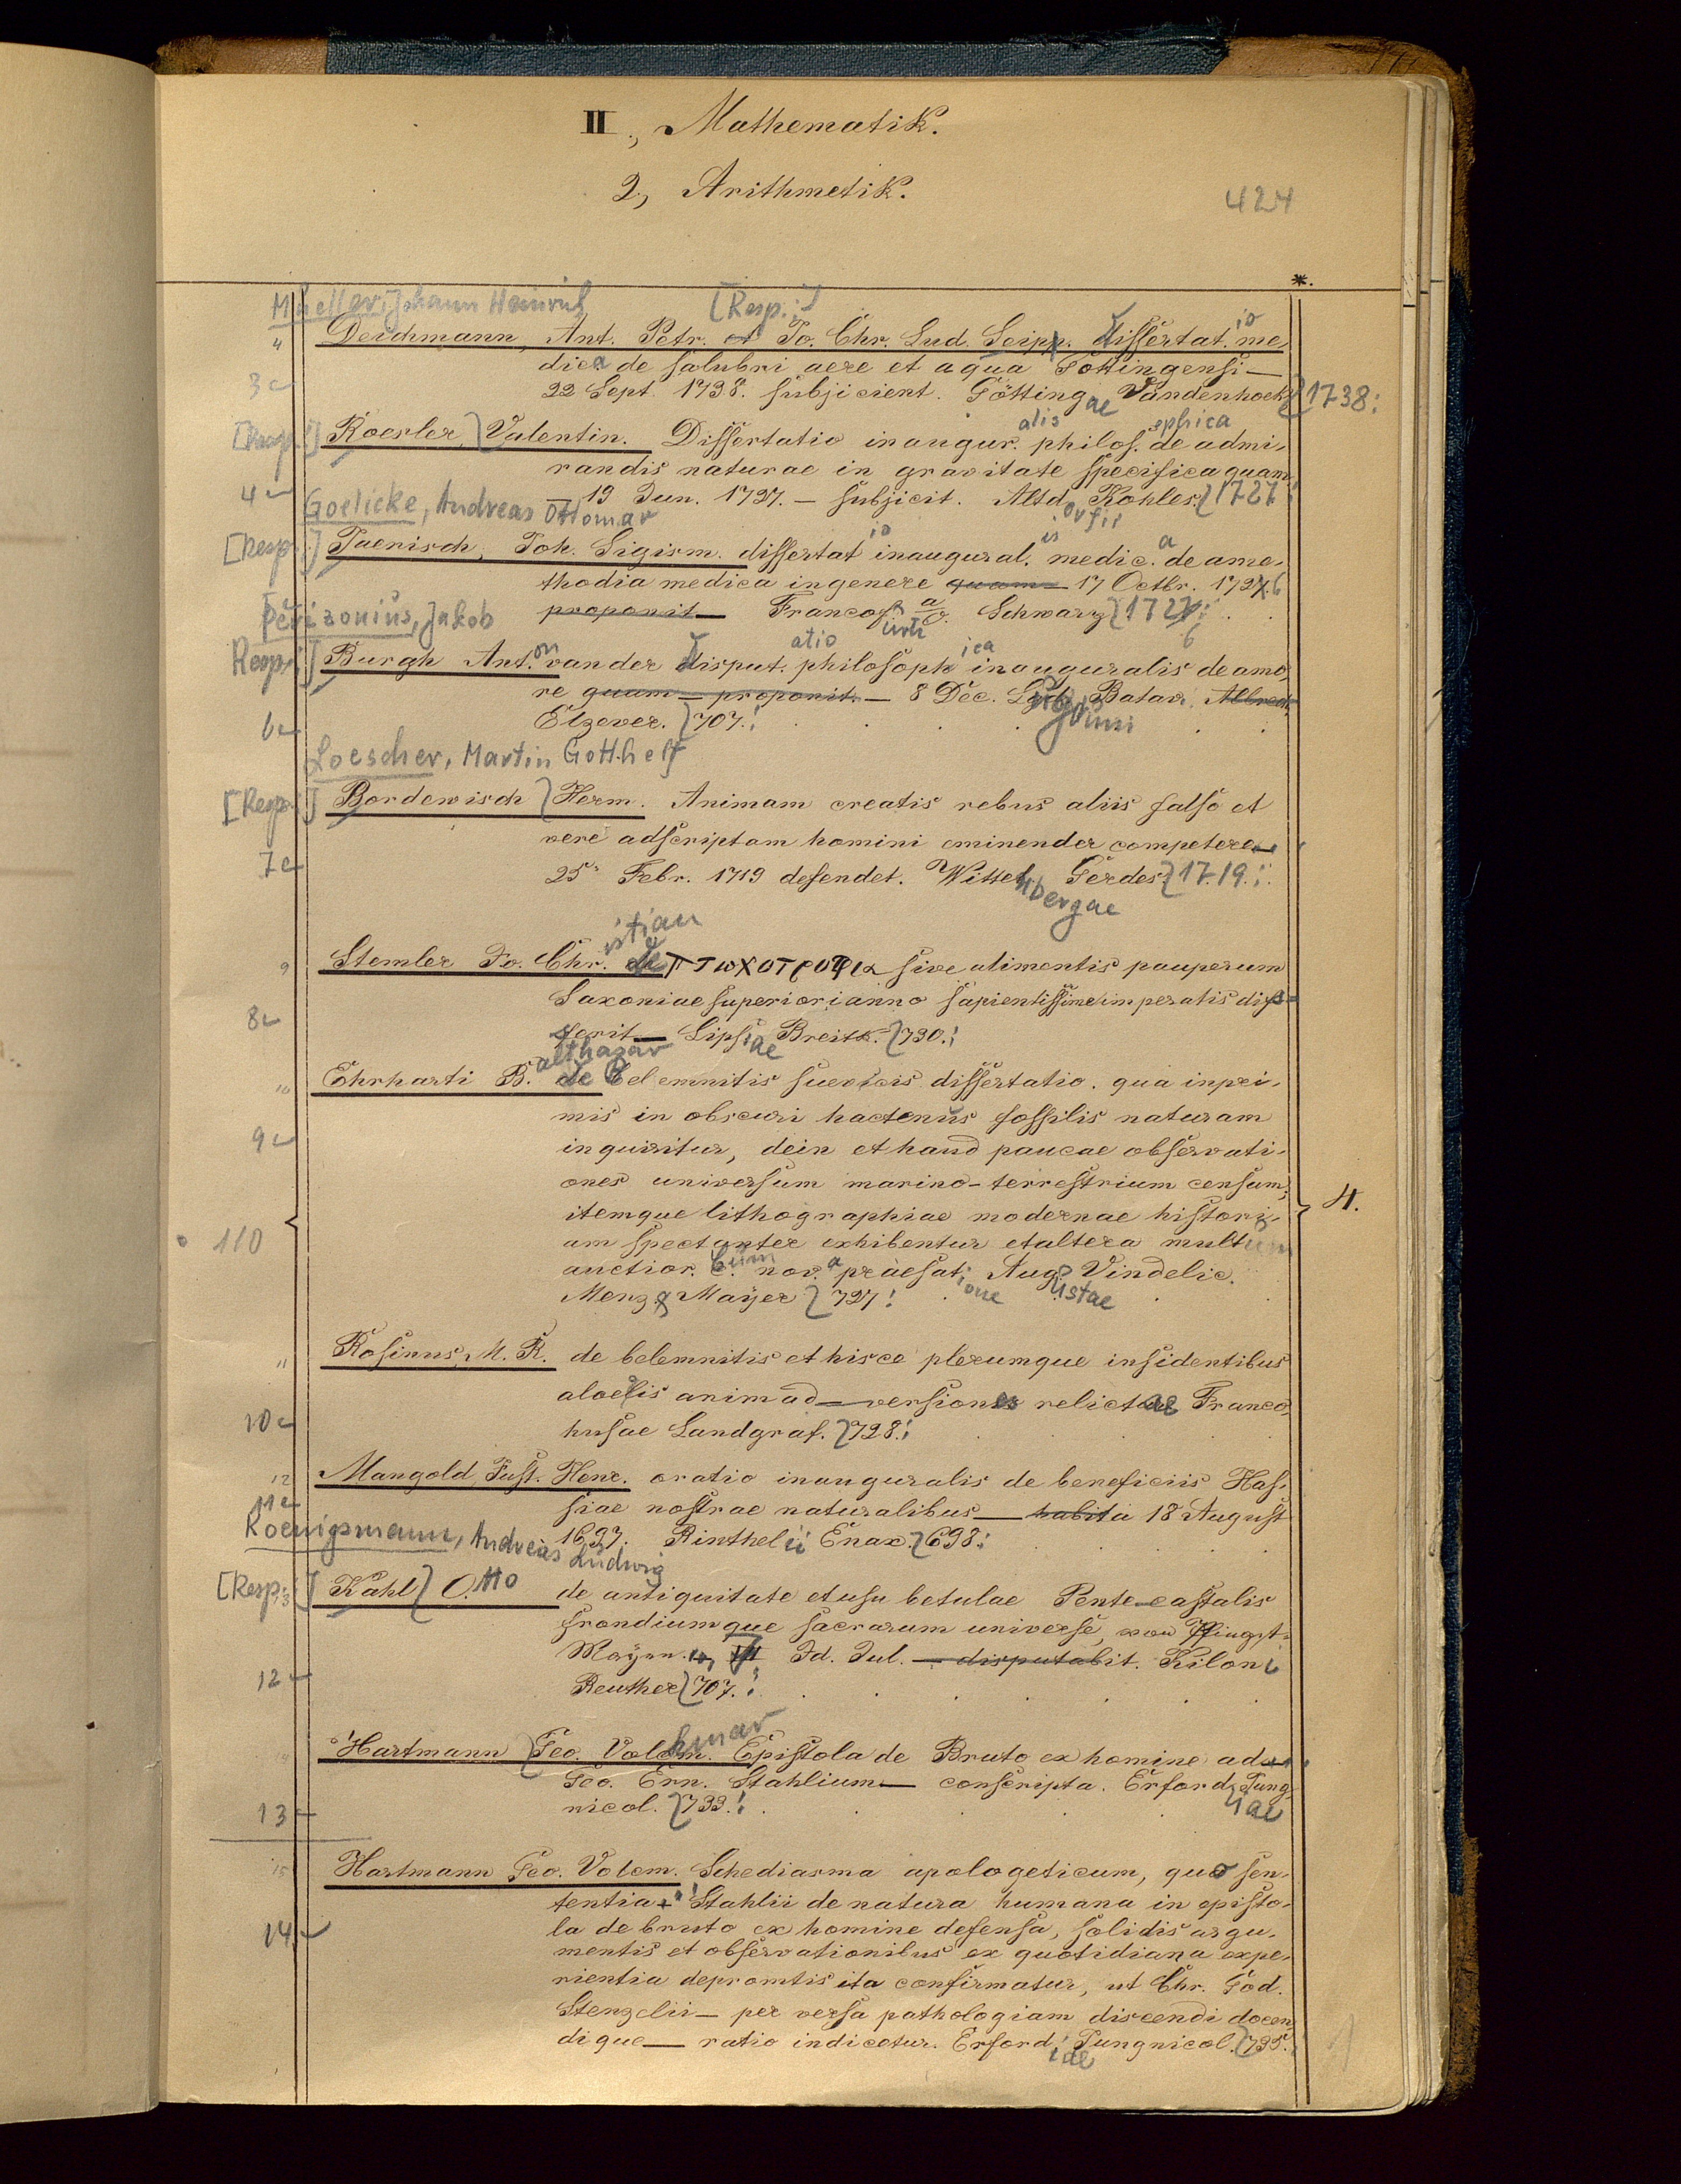 II., Mathematik.
2, Arithmetik.
424
*.
Mueller, Johann Heinrich [Resp.:]
4 Deichmann, Ant. Petr. et Jo. Chr. Lud. Seipp. dissertatio me-
dica de salubri aere et aqua Gottingensi —
3 22 Sept. 1738. subjicient. Göttingae Vandenhoek} 1738:
[Resp.:] Roesler, Valentin. Dissertatio inauguralis philosophica de admi-
randis naturae in gravitate specifica quam
4 — 19 Jun. 1727. — subjicit. Altdorfii Kohles.} 1727
Goelicke, Andreas Ottomar
[Resp.:] Jaenisch, Joh. Sigism. dissertatio inauguralis medica de ame-
thodia medica in genere quam — 17 Octbr. 1726
proponit — Francofurti a/O. Schwarz} 1726:
Perizonius, Jakob
Resp.:] Burgh Anton van der disputatio philosophica inauguralis de amo-
re quam — proponit. — 8 Dec. Lugduni Batav.
6 Elzever. } 707.:
Loescher, Martin Gotthelf
[Resp.:] Bordewisch } Herm. Animam creatis rebus aliis falso et
vere adscriptam homini eminender competere —
7 25. Febr. 1719 defendet. Wittenbergae Gerdes} 1719.:
9 Stemler Jo. Christian de πτωχοτροφια sive alimentis pauperum
Saxoniae superiori anno sapientissime imperatis dis-
8 serit — Lipsiae Breitk. } 730.:
10 Ehrharti Balthasar de Belemnitis suevicis dissertatio. qua inpri-
mis in obscuri hactenus fossilis naturam
9 inquiritur, dein et haud paucae observati-
ones universum marino-terrestrium censum,
4.
itemque lithographiae modernae histori-
110 am spectanter exhibentur et altera multum
auctior. cum nova praefatione Augustae Vindelic.
Menz & Mayer } 727:
11 Rosinus, M. R. de belemnitis et hisce plerumque insidentibus
aloelis animad — versiones relictae Franco-
10 husae Landgraf. } 728.:
12 Mangold, Just. Henr. oratio inauguralis de beneficiis Has-
11 siae nostrae naturalibus — habita 18 August
1697. Rinthelii Enax. } 698:
Koenigsmann, Andreas Ludwig
[Resp.:] 13 Kahl } Otto de antiquitate et usu betulae Pente-castalis
frondiumque sacrarum universe, von Pfingst-
Mayen. Id. Jul. — disputabit. Kiloni
12 Reuther } 707.:
14 Hartmann } Geo. Volckmar Epistola de Bruto ex homine ad —
Geo. Ern. Stahlium — conscripta. Erfordiae Jung-
13 nicol. } 733.:
15 Hartmann Geo. Volcm. Schediasma apologeticum, quo sen-
tentia Stahlii de natura humana in episto-
14 la de bruto ex homine defensa, solidis argu-
mentis et observationibus ex quotidiana expe-
rientia depromtis ita confirmatur, ut Chr. God.
Stenzelii — per versa pathologiam discendi docen
dique — ratio indicetur. Erfordiae Jungnicol. } 735.